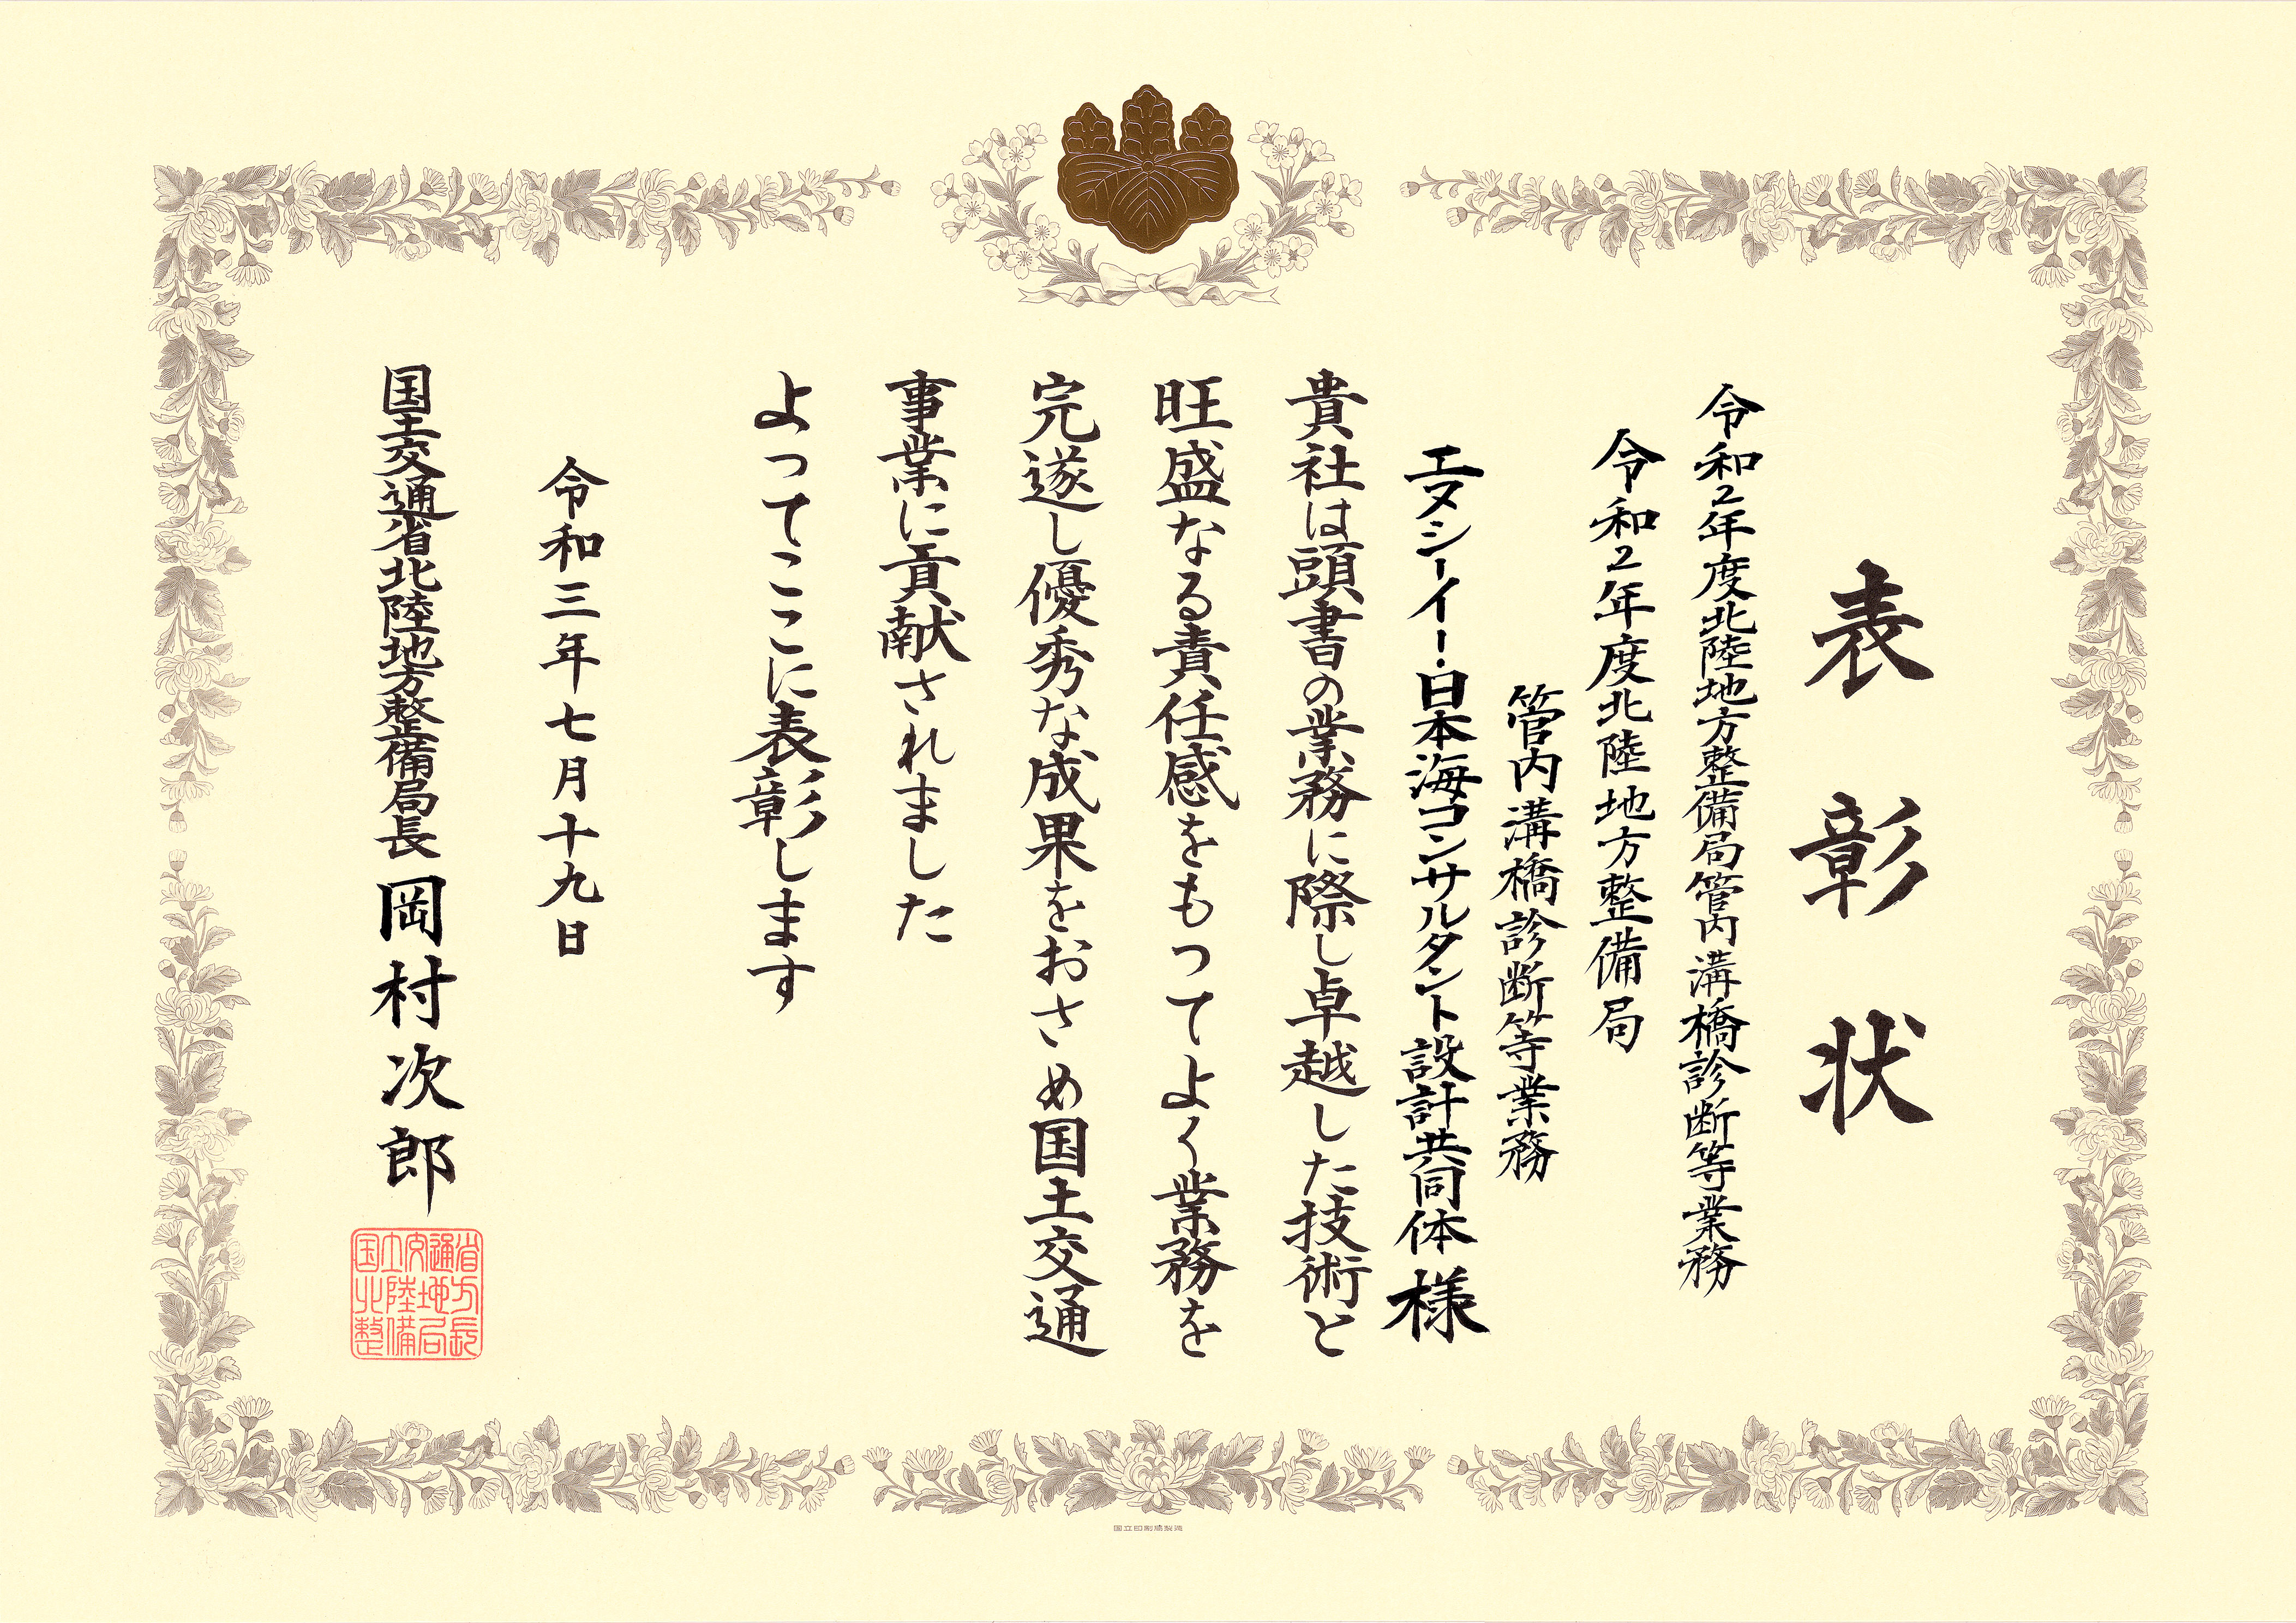 表彰状
令和2年度北陸地方整備局管内溝橋診断等業務
令和2年度北陸地方整備局
管内溝橋診断等業務
エヌシーイー・日本海コンサルタント設計共同体 様
貴社は頭書の業務に際し卓越した技術と
旺盛なる責任感をもつてよく業務を
完遂し優秀な成果をおさめ国土交通
事業に貢献されました
よってここに表彰します
令和三年七月十九日
国土交通省北陸地方整備局長 岡村次郎
国土交通省
北陸地方
整備局長
国立印刷局製造